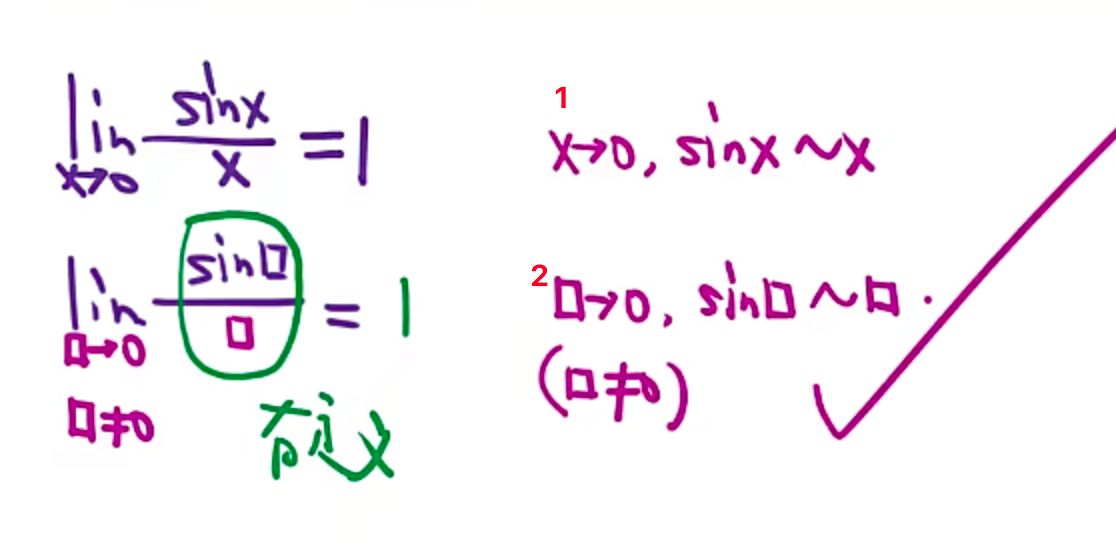 lim x→0 sinx/x =1
lim □→0 sin□/□ = 1
□≠0
有定义
1
x→0, sinx~x
2
□→0, sin□~□.
(□≠0)